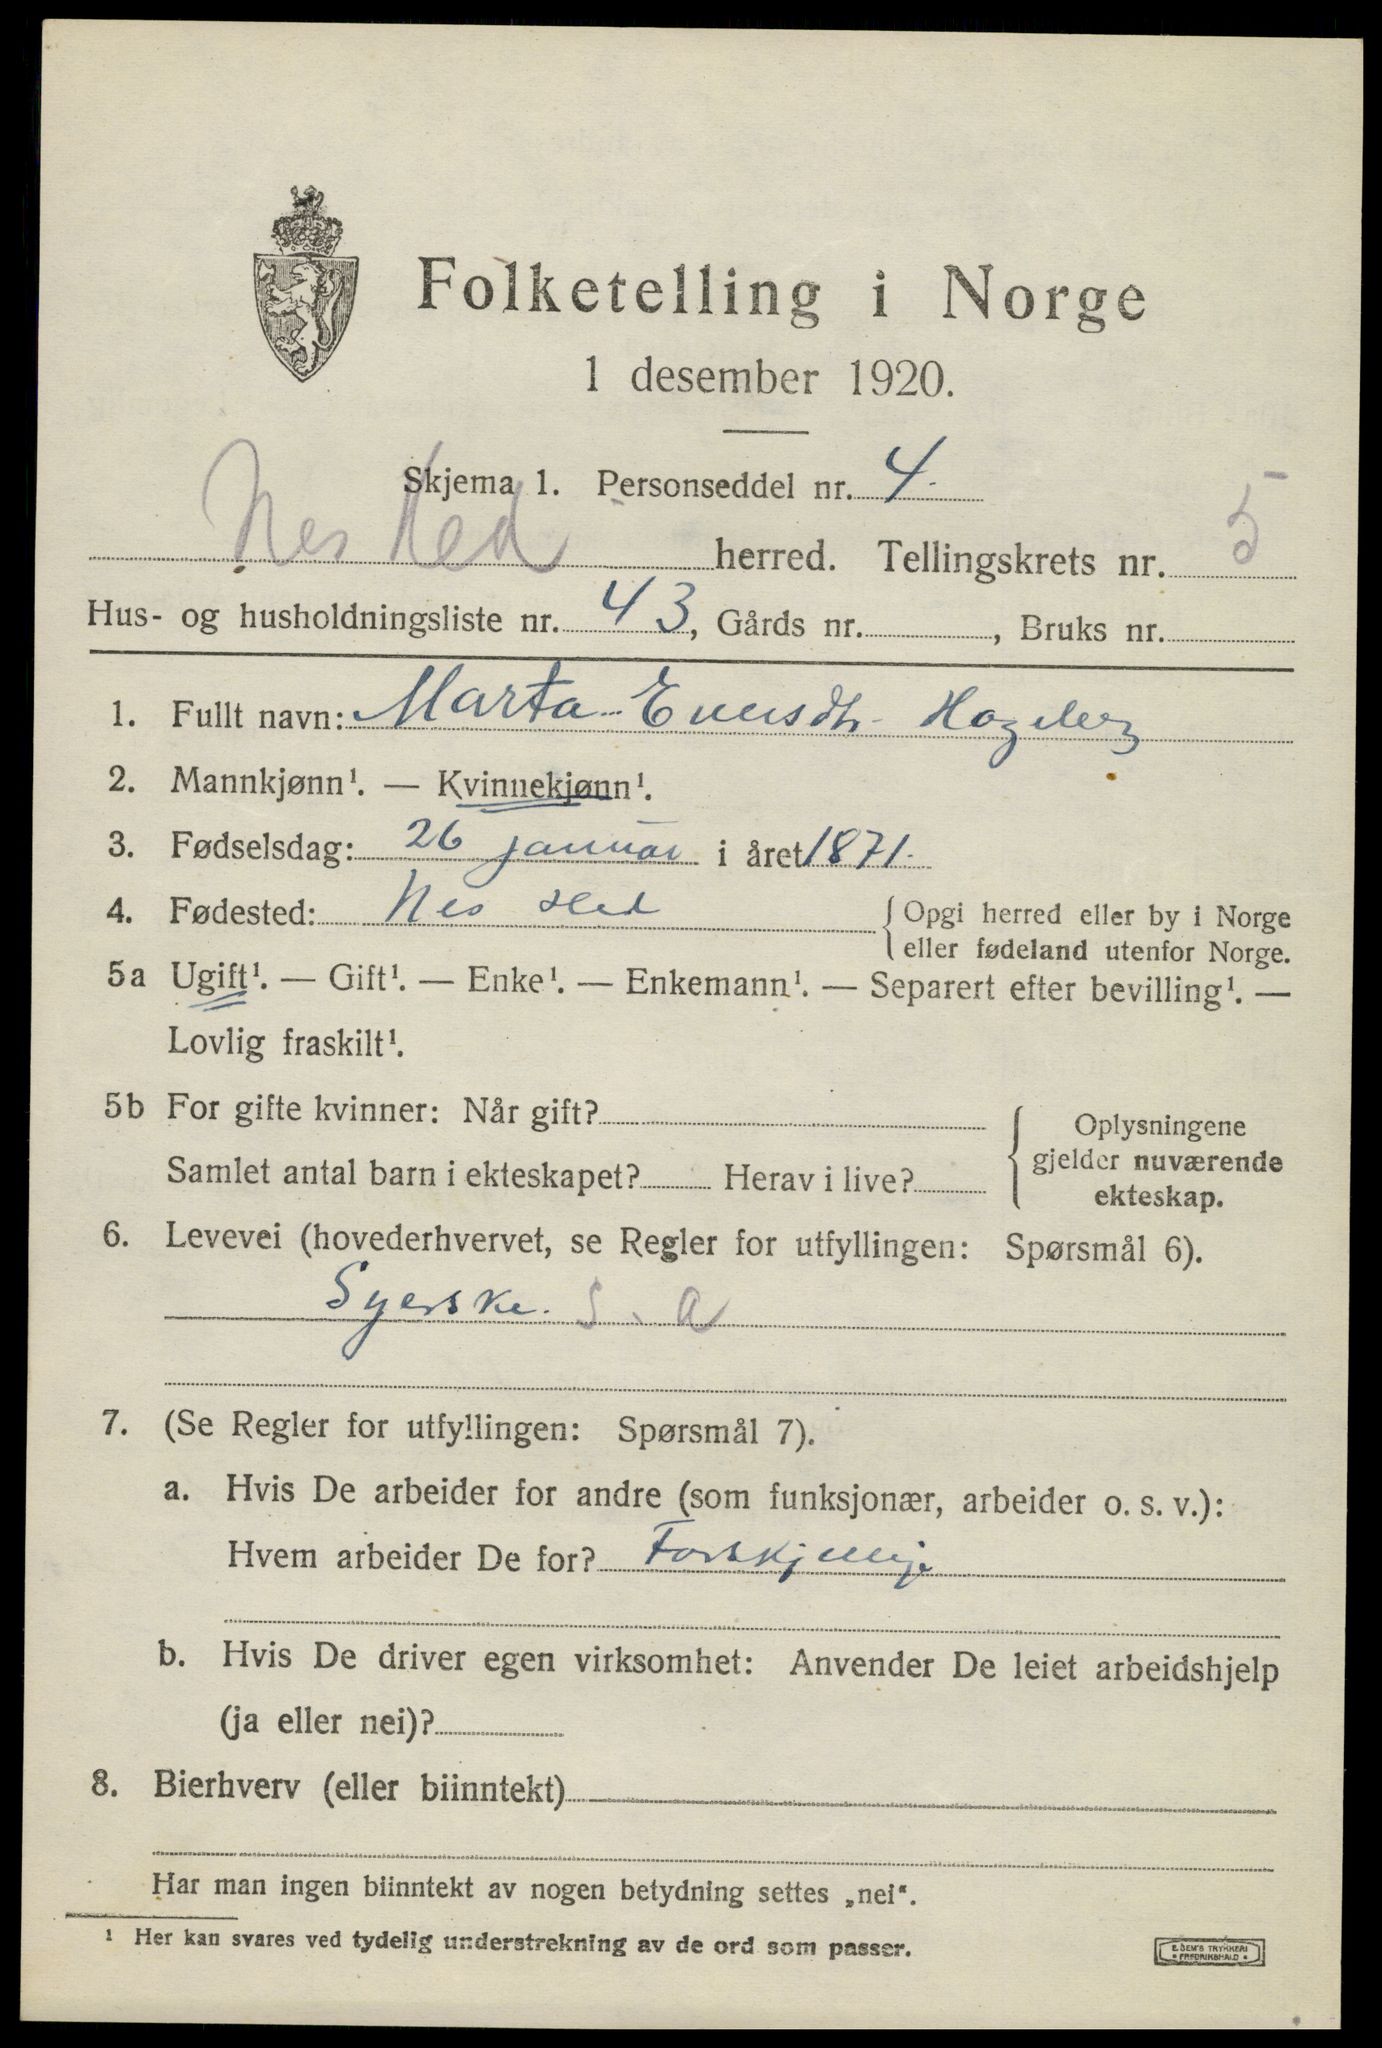 Folketelling i Norge
1 desember 1920.
Skjema 1. Personseddel nr. 4.
Nes Hed herred. Tellingskrets nr. 5
Hus- og husholdningsliste nr. 43, Gårds nr. , Bruks nr.
1. Fullt navn: Marta
2. Mannkjønn¹. — Kvinnekjønn¹.
3. Fødselsdag: 26 januar i året 1871.
4. Fødested: Nes Hed {Opgi herred eller by i Norge
eller fødeland utenfor Norge.
5a Ugift¹. — Gift¹. — Enke¹. — Enkemann¹. — Separert efter bevilling¹. —
Lovlig fraskilt¹.
5b For gifte kvinner: Når gift? { Oplysningene
gjelder nuværende
Samlet antal barn i ekteskapet? Herav i live? ekteskap.
6. Levevei (hovederhvervet, se Regler for utfyllingen: Spørsmål 6).
Syerske. S. a
7. (Se Regler for utfyllingen: Spørsmål 7).
a. Hvis De arbeider for andre (som funksjonær, arbeider o. s. v.):
Hvem arbeider De for? Forskjellige
b. Hvis De driver egen virksomhet: Anvender De leiet arbeidshjelp
(ja eller nei)?
8. Bierhverv (eller biinntekt)
Har man ingen biinntekt av nogen betydning settes „nei“.
¹ Her kan svares ved tydelig understrekning av de ord som passer.
E. SEM'S TRYKKERI
• FREDRIKSHALD •